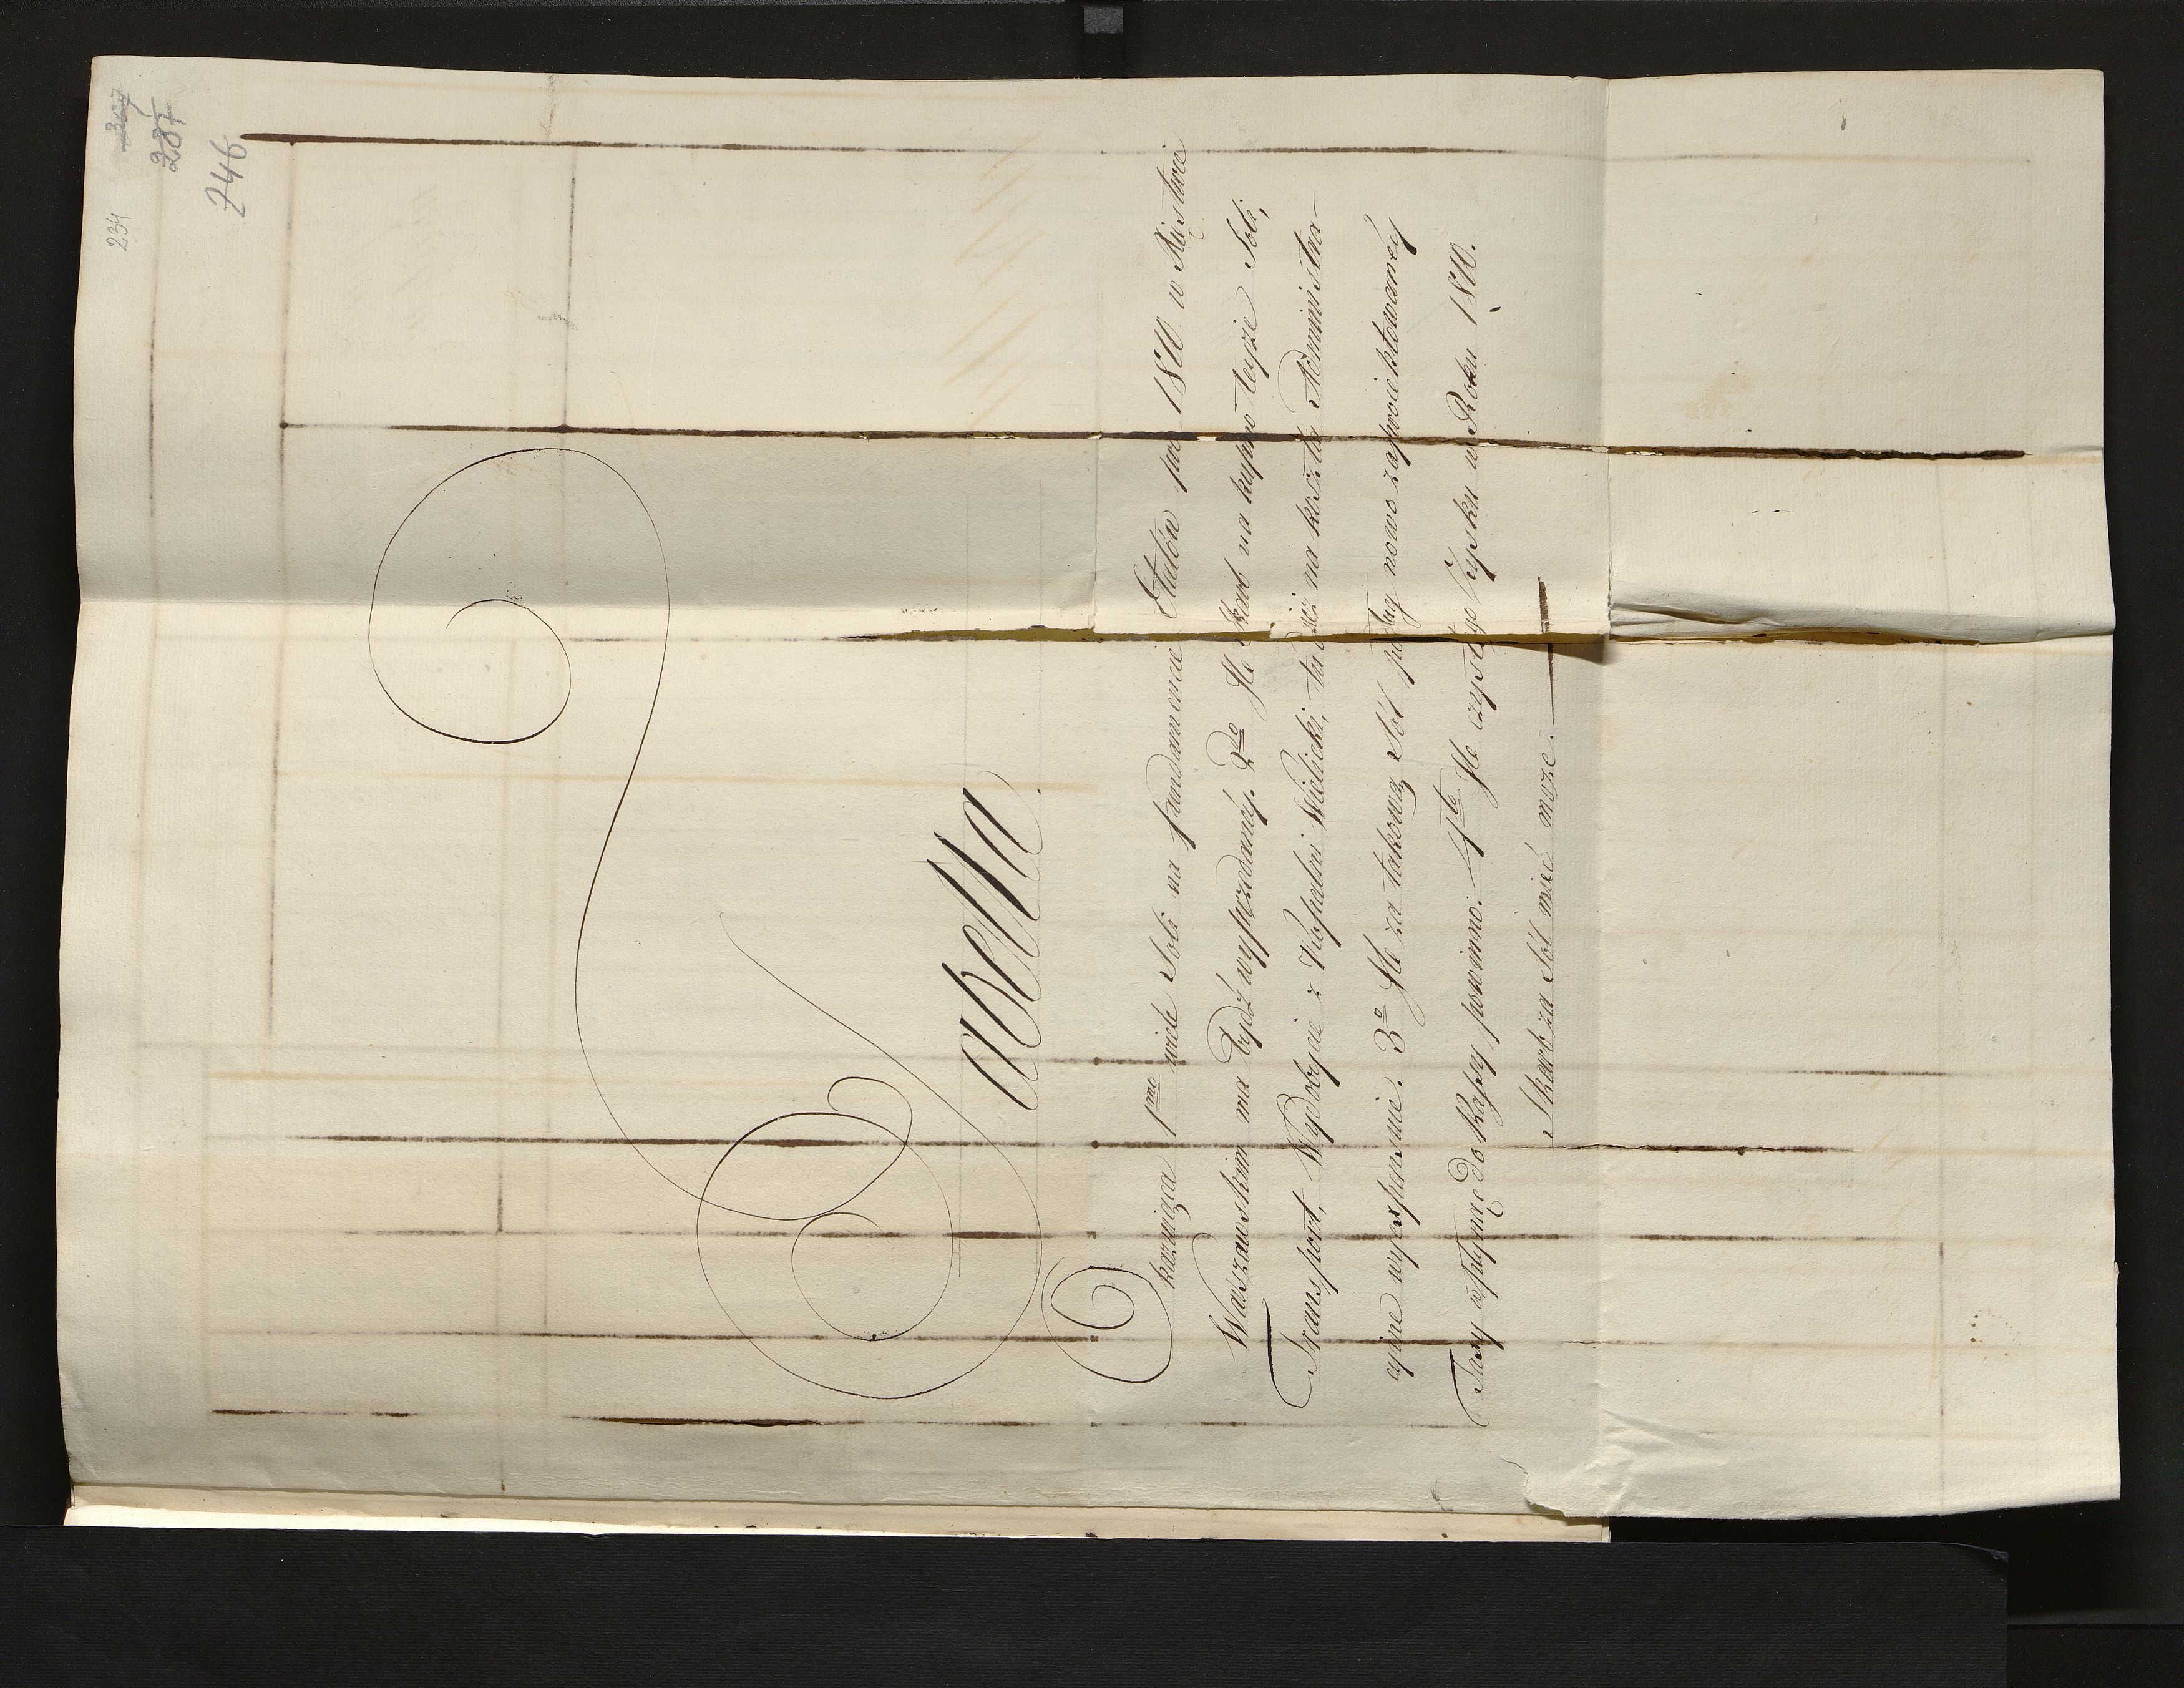 307
287
234
246
Tabella
Okazuiąca 1mo wiele Soli na fundamencie Etatów pro 1810 w Xięstwie
Warszawskim ma bydź wysprzedanéy. 2do Ile Skarb na kupno teyże Soli,
Transport, Wydobycie z Kopalni Wielicki, tudzież na koszta Administra-
cyine wyexpensuie. 3o Ile za takową Sól podług nowo zaproiektowanéy
Taxy wpłynąć do Kassy powinno. 4to Ile czystego Zysku w Roku 1810.
Skarb za Sól mieć może.